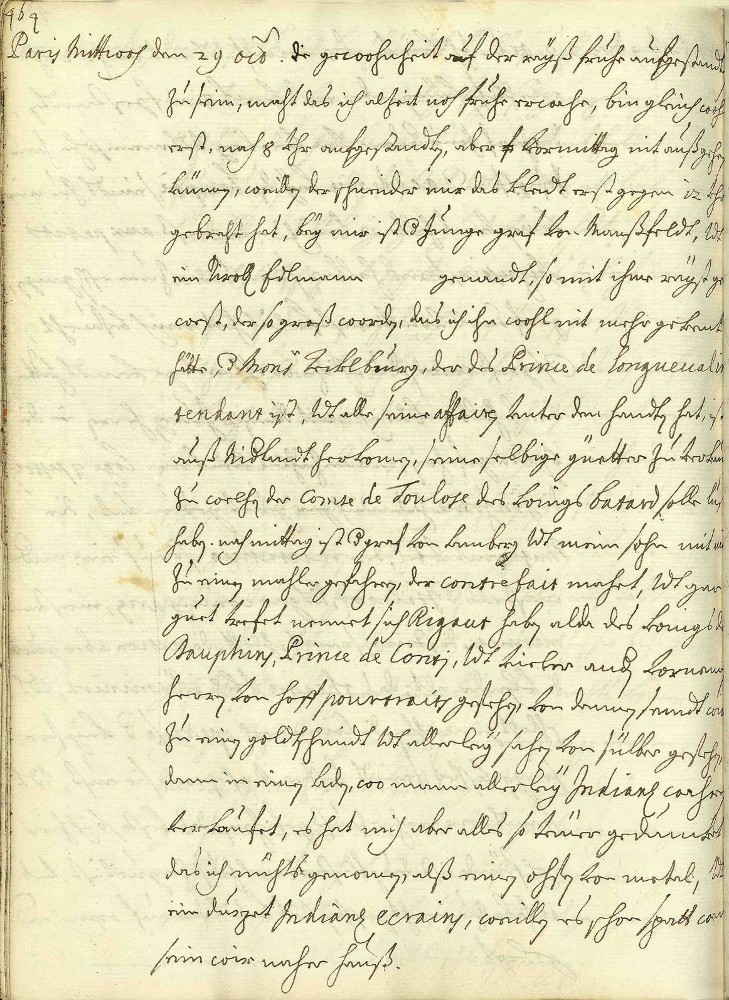 464
Paris Mittwoch den 29 octb. die gewohnheit auf der rayß fruhe aufgestandt
zu sein, macht das ich alzeit noch fruhe erwache, bin gleich woh
erst, nach 8 Uhr aufgestandten, aber Vormittag nit außgehen
künnen, weillen der schneider mir das kleidt erst gegen 12 Uhr
gebracht hat, bey mir ist d Junge graf von Manßfeldt, Udt
ein tiroll Edlmann genandt, so mit ihme rayst ge
west, der so groß worden, das ich ihn wohl nit mehr gekent
hätte, d Mons Tecklburg, der des Prince de longueval in
tendant ist, Udt alle seine affairen Unter den handten hat, ist
auß Nidlandt herkomen, seine selbige güetter zu verkau
zu welchen der Comte de Toulose des königs batard solle lus
haben. nach mittag ist d graf von Lamberg Udt mein sohn mit mi
zu einen mahler gefahren, der contrefait machet, Udt gar
guet trefet nennet sich Rigaut haben alda des königs de
Dauphins, Prince de Conti, Udt viller andern vornemen
herrn von hoff pourtraits gesehen, von dannen seindt wir
zu einen goldtschmidt Udt allerley sachen von silber gesehen,
dann in einen laden, woo mann allerley Indianische wahren
verkaufet, es hat mich aber alles so teuer gedunket
das ich nichts genomen, alß einen ochsen von metal, Udt
ein duzet Indianische ecrains, weillen es schon spatt ware
sein wir nacher hauß.